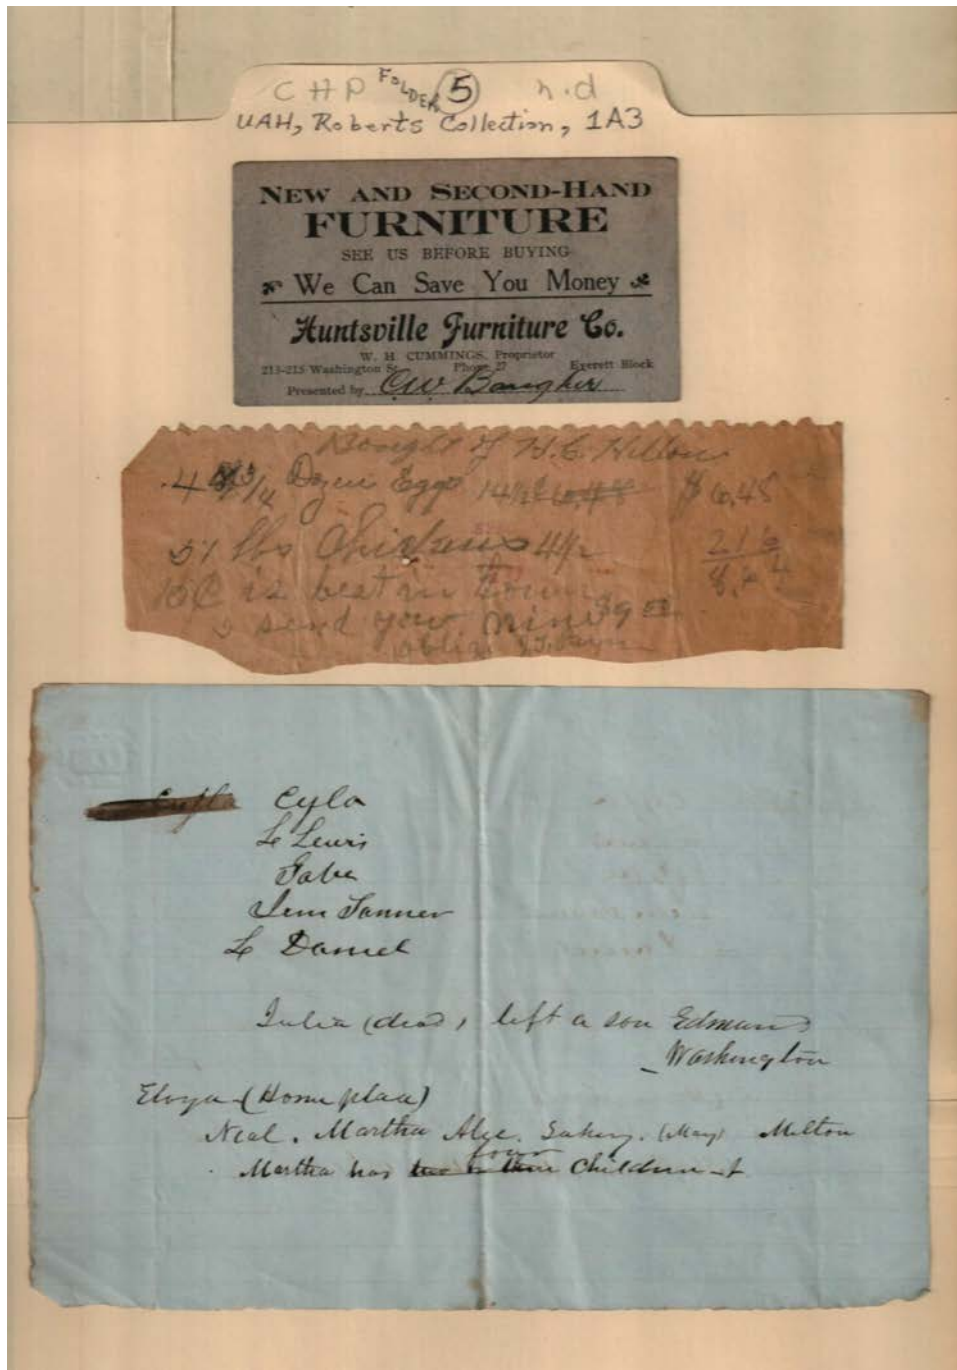 CHP FOLDER 5 n.d
UAH, Roberts Collection, 1A3
NEW AND SECOND-HAND
FURNITURE
SEE US BEFORE BUYING
We Can Save You Money
Huntsville Furniture Co.
W. H CUMMINGS, Proprietor
213-215 Washington St. Phone 27 Everett Block
Presented by CW Baugher
Bought of H.C.
4 3/4 Dozen Eggs 14 1/2 6,48 $6,48
51 lbs Chickens 4 1/2 216
is best in town
I send you nine $9
Cyla
Lewis
Gabe
Jim Tanner
Daniel
Julia (dead) left a son Edmund
Washington
(Home place)
Neal. Martha (May) Milton
four
Martha has two or three Children